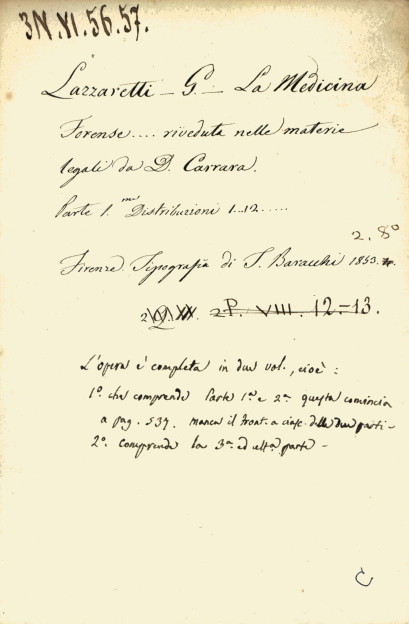 3N.VI.56.57.
Lazzaretti – G. – La Medicina
Forense.... riveduta nelle materie
legali da D. Carrara.
Parte 1.ma Distribuzioni 1..12.....
2. 8º
Firenze. Tipografia di T. Baracchi 1853.
2P. VIII. 12.–13.
L'opera è completa in due vol., cioè:
1º. che comprende Parte 1ª e 2ª questa comincia
a pag. 537. manca il front. a ciasc. delle due parti –
2º. Comprende la 3ª ed ult.a parte –